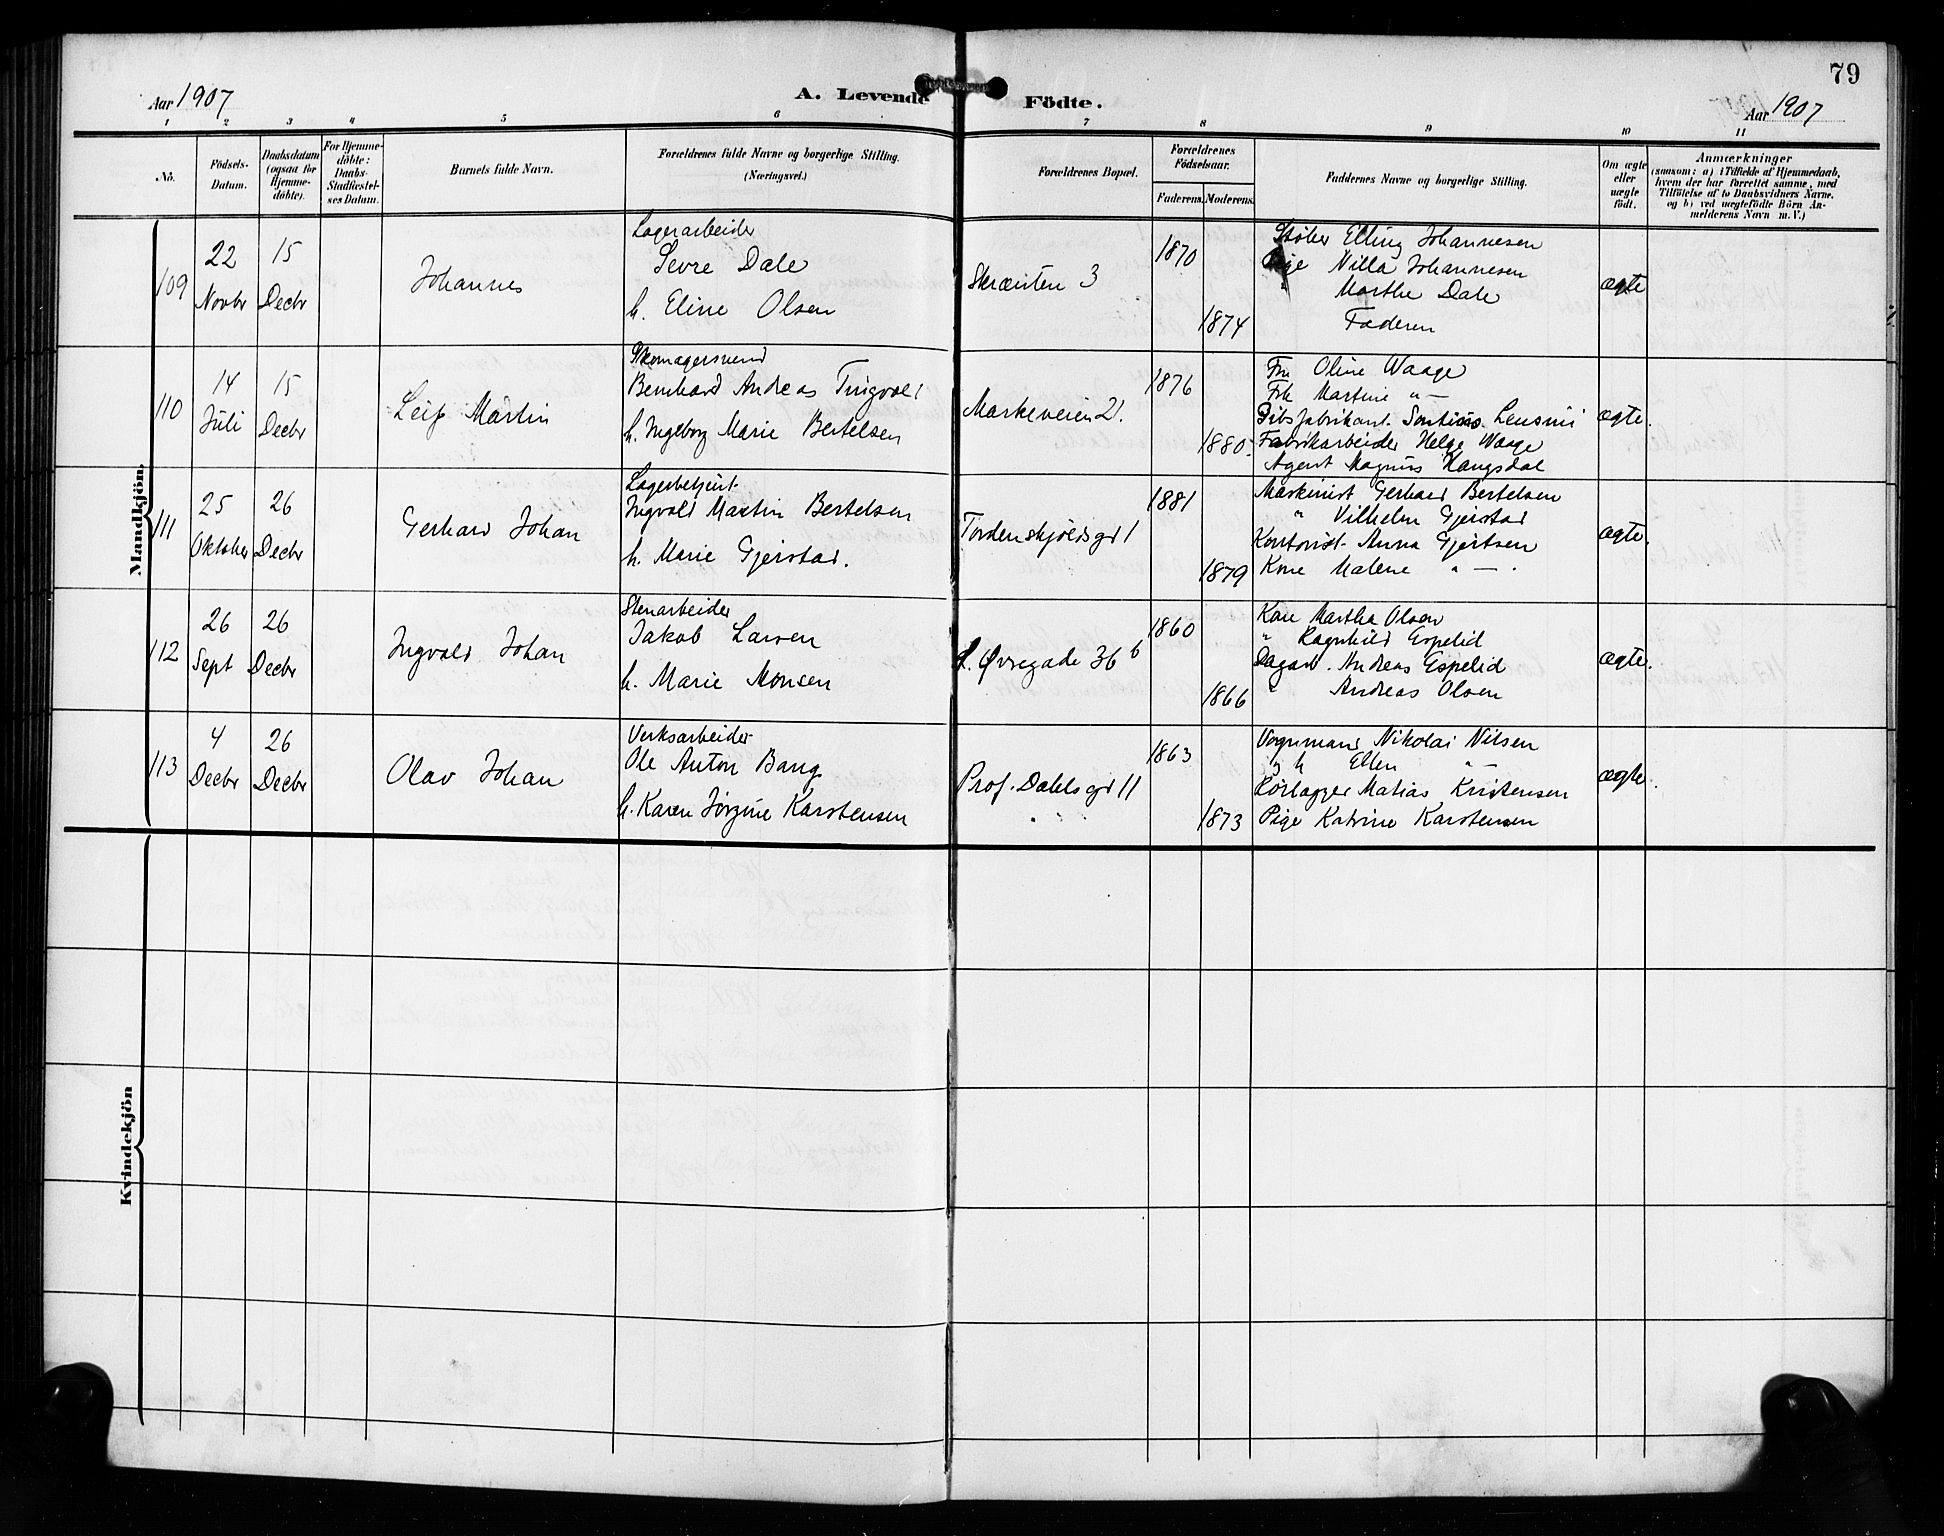 79
Aar 1907
A. Levende Födte.
Aar 1907
1 2 3 4 5 6 7 8 9 10 11
No.
Födsels-
Datum.
Daabsdatum
(ogsaa for
Hjemme-
döbte).
For Hjemme-
döbte:
Daabs-
Stadfæstel-
ses Datum.
Barnets fulde Navn.
Forældrenes fulde Navne og borgerlige Stilling.
(Næringsvei.)
Forældrenes Bopæl.
Forældrenes
Födselsaar.
Faderens. Moderens.
Faddernes Navne og borgerlige Stilling.
Om ægte
eller
uægte
födt.
Anmærkninger
(saasom: a) i Tilfælde af Hjemmedaab,
hvem der har forrettet samme, med
Tilföielse af to Daabsvidners Navne.
og b) ved uægtefödte Börn An-
melderens Navn m. V.)
Mandkjön.
109
22
Novbr
15
Decbr
Johannes
Lagerarbeider
Sevre Dale
h. Eline Olsen
Skrænten 3
1870
1874
Støber Elling Johannesen
Pige Nilla Johannesen
" Marthe Dale
Faderen
ægte
110
14
Juli
15
Decbr
Leif Martin
Skomagersvend
Bernhard Andreas Tingvold
h. Ingeborg Marie Bertelsen
Markeveien 21.
1876
1880.
Fru Oline Waage
Frk Martine " —
Gibsfabrikant
Fabrikarbeider Helge Waage
Agent Magnus Haugsdal
ægte.
111
25
Oktober
26
Decbr
Gerhard Johan
Lagerbetjent
Ingvald Martin Bertelsen
h. Marie Gjerstad.
Tordenskjoldsgd 1
1881
1879
Maskinist Gerhard Bertelsen
" Vilhelm Gjerstad
Kontorist Anna Gjertsen
Kone Malene " — .
ægte.
112
26
Sept
26
Decbr
Ingvald Johan
Stenarbeider
Jakob Larsen
h. Marie Monsen
Øvregade 36 b
1860
1866
Kone Martha Olsen
" Ragnhild Espelid
Dagarb. Andreas Espelid
" Andreas Olsen
ægte.
113
4
Decbr
26
Decbr
Olav Johan
Verksarbeider
Ole Anton Bang
h. Karen Jørgine Karstensen
Prof. Dahlsgd 11
1863
1873
Vognmand Nikolai Nilsen
" h Ellen " —
Rørlægger Matias Kristensen
Pige Katrine Karstensen
ægte.
Kvindekjön